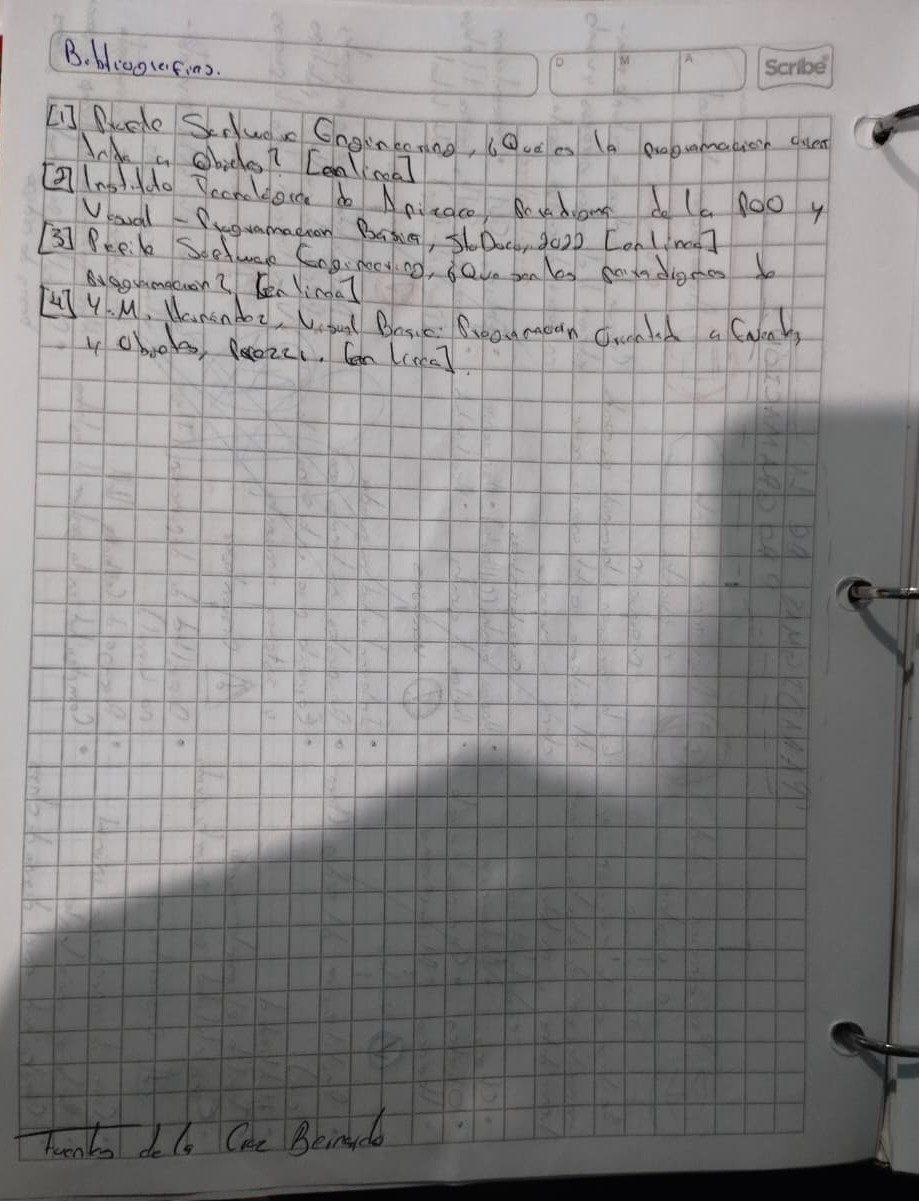 Bibliografias.
D M A
Scribe
[1] Software Engineering, ¿Que es la programacion orien
tada a Objetos? [en linea]
[2] Instituto Tecnologico de Apizaco, Paradigma de la POO y
Visual - Programacion Basica, StuDocu, 2022 [en linea]
[3] Software Engineering, ¿Que son los paradigmas de
programacion? [en linea]
[4] Y. M. Hernandez, Visual Basic: Programacion Orientada a Eventos
y Objetos, Prezi. [en linea].
Fuentes de la Cruz Bernardo